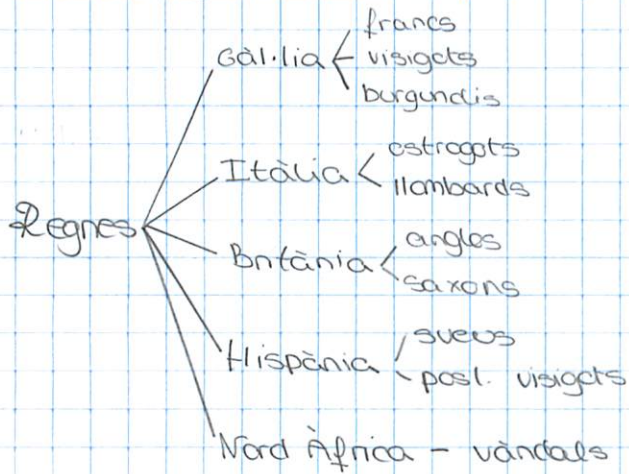 Regnes
Gàl·lia
francs
visigots
burgundis
Itàlia
ostrogots
llombards
Britània
angles
saxons
Hispània
sueus
post. visigots
Nord Àfrica - vàndals